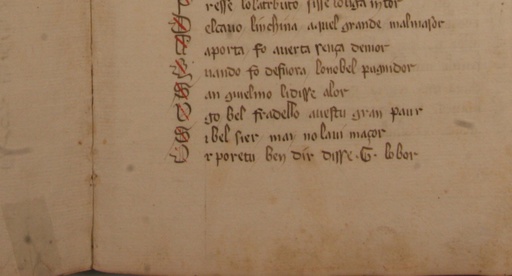 resse lolatrbuto sisse loliga intor
elcavo linchina aquel grande malmasor
aporta fo averta sença demor
uando fo defuora lonobel pugnidor
an guielmo lidisse alor
go bel fradello avestu gran paur
i bel sier mai no lavi maçor
r poretu ben dir disse .G. lobor